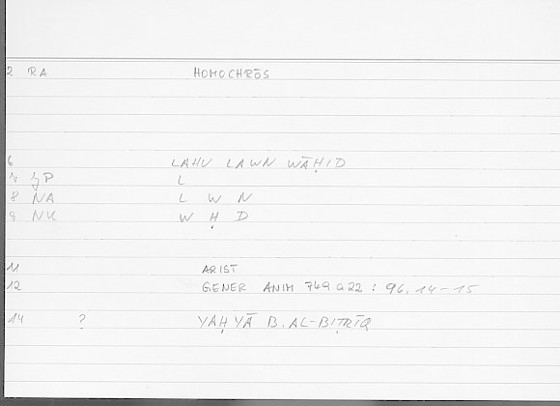 2 RA HOMOCHRŌS
6 LAHU LAWN WĀḤID
7 ȝP L
8 NA L W N
9 NK W Ḥ D
11 ARIST
12 GENER ANIM 749 a 22 : 96, 14-15
14 ? YAḤYĀ B. AL-BIṬRĪQ